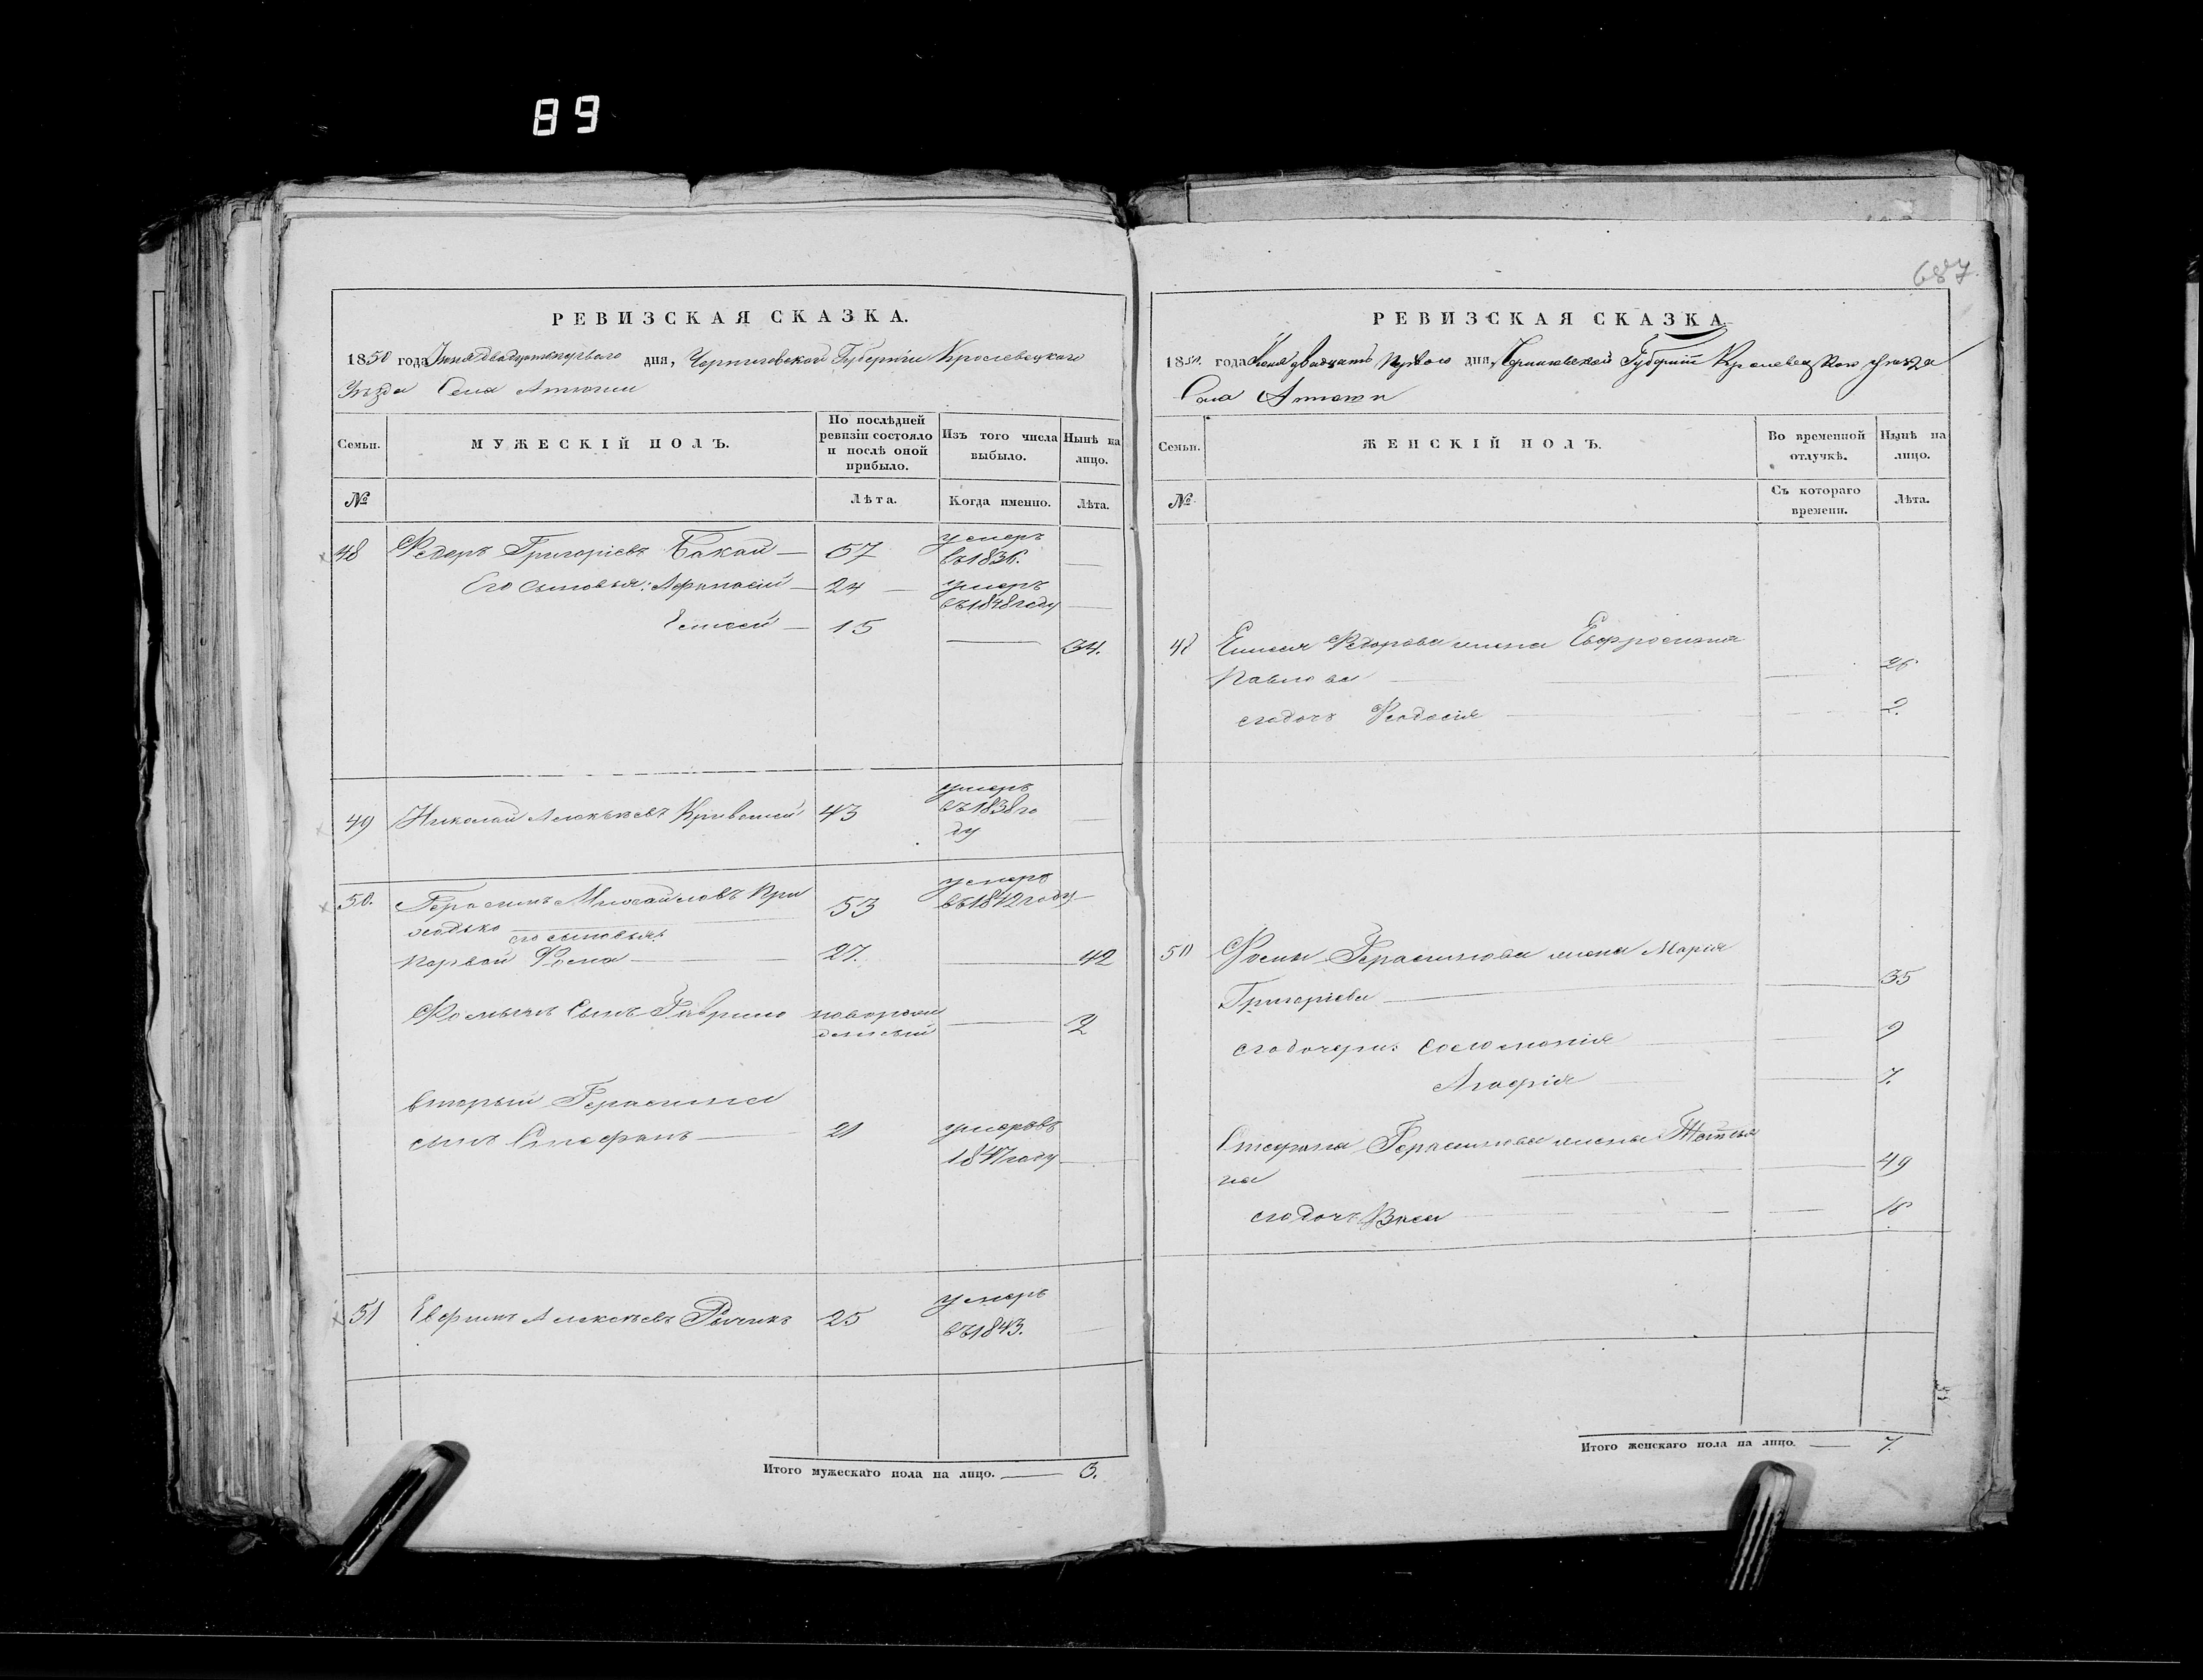 89
687.
РЕВИЗСКАЯ СКАЗКА.
1850 года Іюня двадцатьперваго дня, Черниговской Губерніи Кролевецкаго
Уѣзда Села
Семьи.
МУЖЕСКІЙ ПОЛЪ.
По послѣдней ревизіи состояло и послѣ оной прибыло.
Изъ того числа выбыло.
Нынѣ на лицо.
№
Лѣта.
Когда именно.
Лѣта.
48 Федоръ Григоріевъ Бакай — 57 умеръ въ 1836. —
Его сыновья: Афанасій — 24 — умеръ въ 1848 году —
Елисей — 15 — 34.
49 Николай Алексѣевъ 43 умеръ въ 1838 го
ду —
50. Герасимъ Михайловъ При
ходько 53 умеръ въ 1842 году —
его сыновья:
первой Фома — 27. — 42
Фомы сынъ Гаврило новорож
денный — 2
вторый Герасима
сынъ Стефанъ — 21 умеръ въ
1847 году —
51 Евфимъ Алексѣевъ 25 умеръ
въ 1843. —
Итого мужескаго пола на лицо. — 3.
РЕВИЗСКАЯ СКАЗКА.
1850. года Іюня двадцать перваго дня, Черниговской Губерніи Кролевецкого уѣзда
Села
Семьи.
ЖЕНСКІЙ ПОЛЪ.
Во временной отлучкѣ.
Нынѣ на лицо.
№
Съ котораго времени.
Лѣта.
48 Елисея Федорова жена Евфросинія
Павлова — 26
егодочь Феодосія — 2.
50 Фомы Герасимова жена Марія
Григоріева — 35
егодочери: Соломонія — 9
Агафія — 7.
Стефана Герасимова жена Татья
на — 49
егодочь — 16
Итого женскаго пола на лицо. — 7.